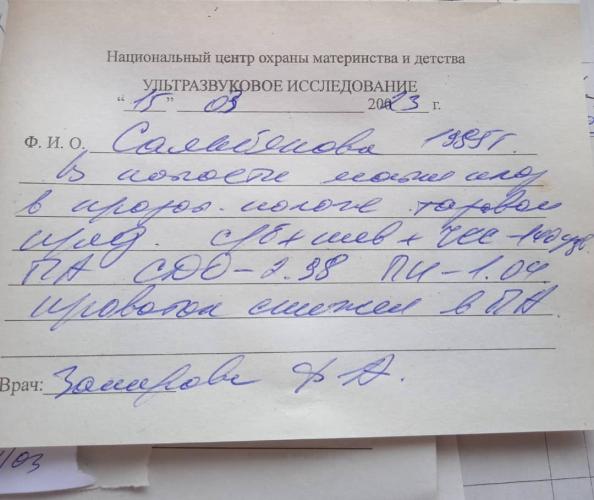 Национальный центр охраны материнства и детства
УЛЬТРАЗВУКОВОЕ ИССЛЕДОВАНИЕ
“ 15 ” 03 2023 г.
Ф. И. О. 1995г.
В полости матки плод
в продол. положе тазовом
предл. с/б+ шев+ ЧСС-140удв.
ПА СДО-2.98 ПИ-1.04
кровоток снижен в ПА
Врач: Ф А.
/03